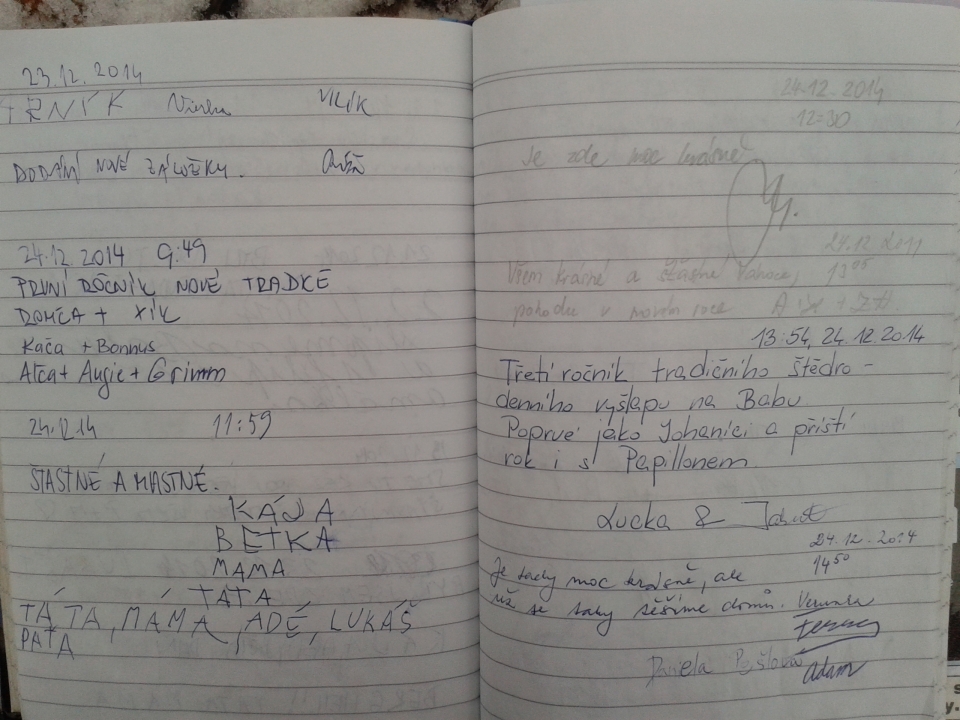 23.12.2014
VILÍK
DODÁNÍ NOVÉ ZÁLOŽKY.
24.12.2014 9:49
PRVNÍ ROČNÍK NOVÉ TRADICE
DOMČA + XÍK
Kača + Bonnus
Alča + Augie + Grimm
24.12.14 11:59
ŠŤASTNÉ A MASTNÉ.
KÁJA
BETKA
MAMA
TÁTA
TÁTA, MÁMA, ADÉ, LUKÁŠ
PAŤA
24.12.2014
12:30
Je zde moc krásně!
24.12.2014
Všem krásné a šťastné Vánoce, 13 05
pohodu v novém roce
13:54, 24.12.2014
Třetí ročník tradičního štědro-
denního výšlapu na Babu
Poprvé jako Johanici a příští
rok i s Papillonem
Lucka &
24.12.2014
Je tady moc krásně, ale 14 50
už se taky těšíme domů. Verunka
Daniela
Adam